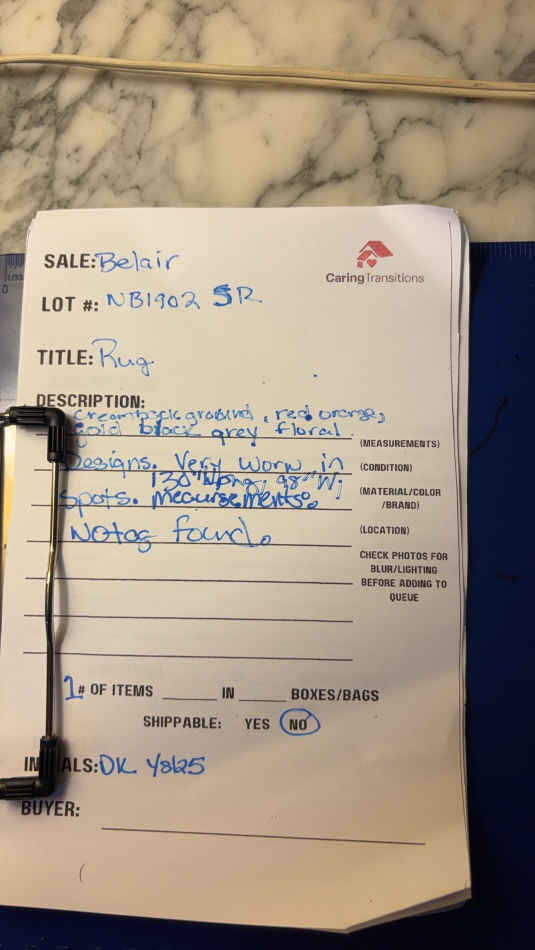 SALE: Belair
CaringTransitions
LOT #: NB1902 SR
TITLE: Rug
DESCRIPTION:
Creambackground, red orange,
Gold black grey floral.
(MEASUREMENTS)
Designs. Very worn in
(CONDITION)
130" Long; 98" W;
spots. Measursements:
(MATERIAL/COLOR
/BRAND)
No tag found.
(LOCATION)
CHECK PHOTOS FOR
BLUR/LIGHTING
BEFORE ADDING TO
QUEUE
1 # OF ITEMS ______ IN ______ BOXES/BAGS
SHIPPABLE: YES NO
INITIALS: DK
BUYER: